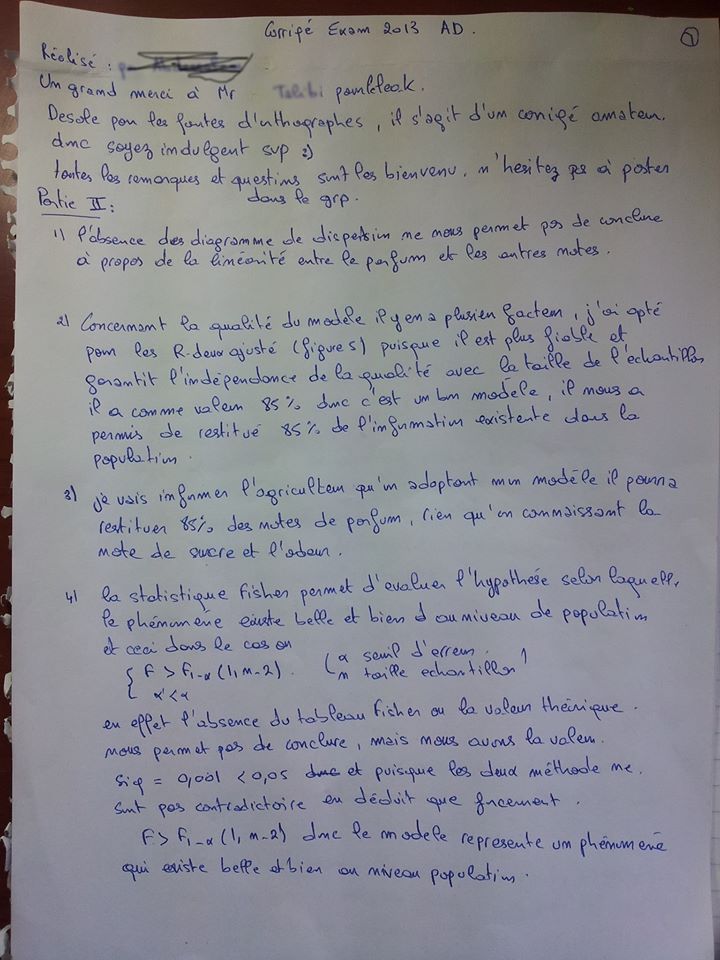 Corrigé Exam 2013 AD.
1
Réalisé :
Un grand merci à Mr Talibi
Desole pou les fautes d'orthographes, il s'agit d'un corrigé amateur.
donc soyez indulgent svp :)
toutes les remarques et questions sont les bienvenu. n'hesitez pas à poster
dans le grp.
Partie II :
1) l'absence des diagramme de dispersion ne nous permet pas de conclure
à propos de la linéarité entre le parfum et les autres notes.
2) Concernant la qualité du modèle il y en a plusieu facteur, j'ai opté
pour les R-deux ajusté (figure 5) puisque il est plus fiable et
garantit l'indépendance de la qualité avec la taille de l'échantillon
il a comme valeur 85% donc c'est un bon modèle, il nous a
permis de restitué 85% de l'information existente dans la
population.
3) je vais informer l'agriculteur qu'en adoptant mon modèle il pourra
restituer 85% des notes de parfum, rien qu'en connaissant la
note de sucre et l'odeur.
4) la statistique Fisher permet d'evaluer l'hypothèse selon laquelle
le phénomène existe belle et bien d au niveau de population
et ceci dans le cas ou
{ F > F1-α (1, n-2). ( α seuil d'erreur. )
{ α' < α ( n taille echantillon )
en effet l'absence du tableau Fisher ou la valeur théorique.
nous permet pas de conclure, mais nous avons la valeur.
Sig = 0,001 < 0,05 donc et puisque les deux méthode ne.
sont pas contradictoire en déduit que forcement.
F > F1-α (1, n-2) donc le modele represente un phénomène
qui existe belle et bien au niveau population.